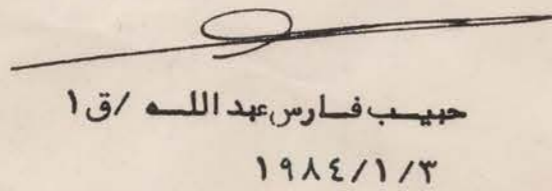 حبيب فارس عبد الله /ق ١
١٩٨٤/١/٣